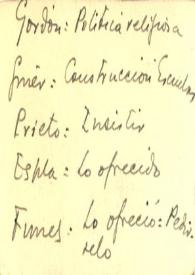 Gordón: Política religiosa
Giner: Construcción Escuelas
Prieto: Insistir
Espla: Lo ofrecido
Funes: Lo ofreció: Pedír-
selo